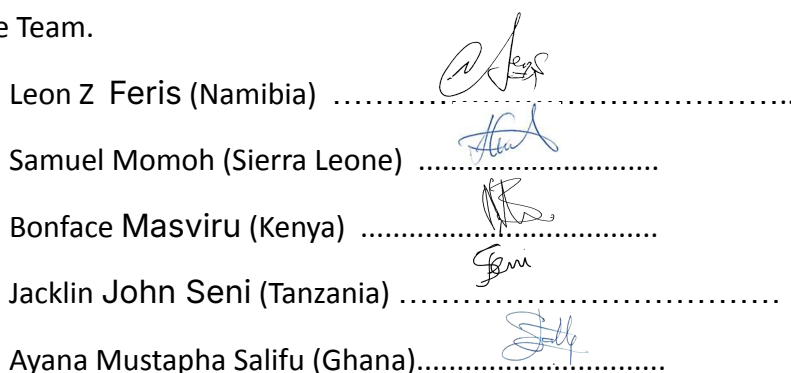 e Team.
Leon Z Feris (Namibia) ………………………………………………...
Samuel Momoh (Sierra Leone) ..............................
Bonface Masviru (Kenya) .....................................
Jacklin John Seni (Tanzania) ………………………………
Ayana Mustapha Salifu (Ghana)...............................
Seni